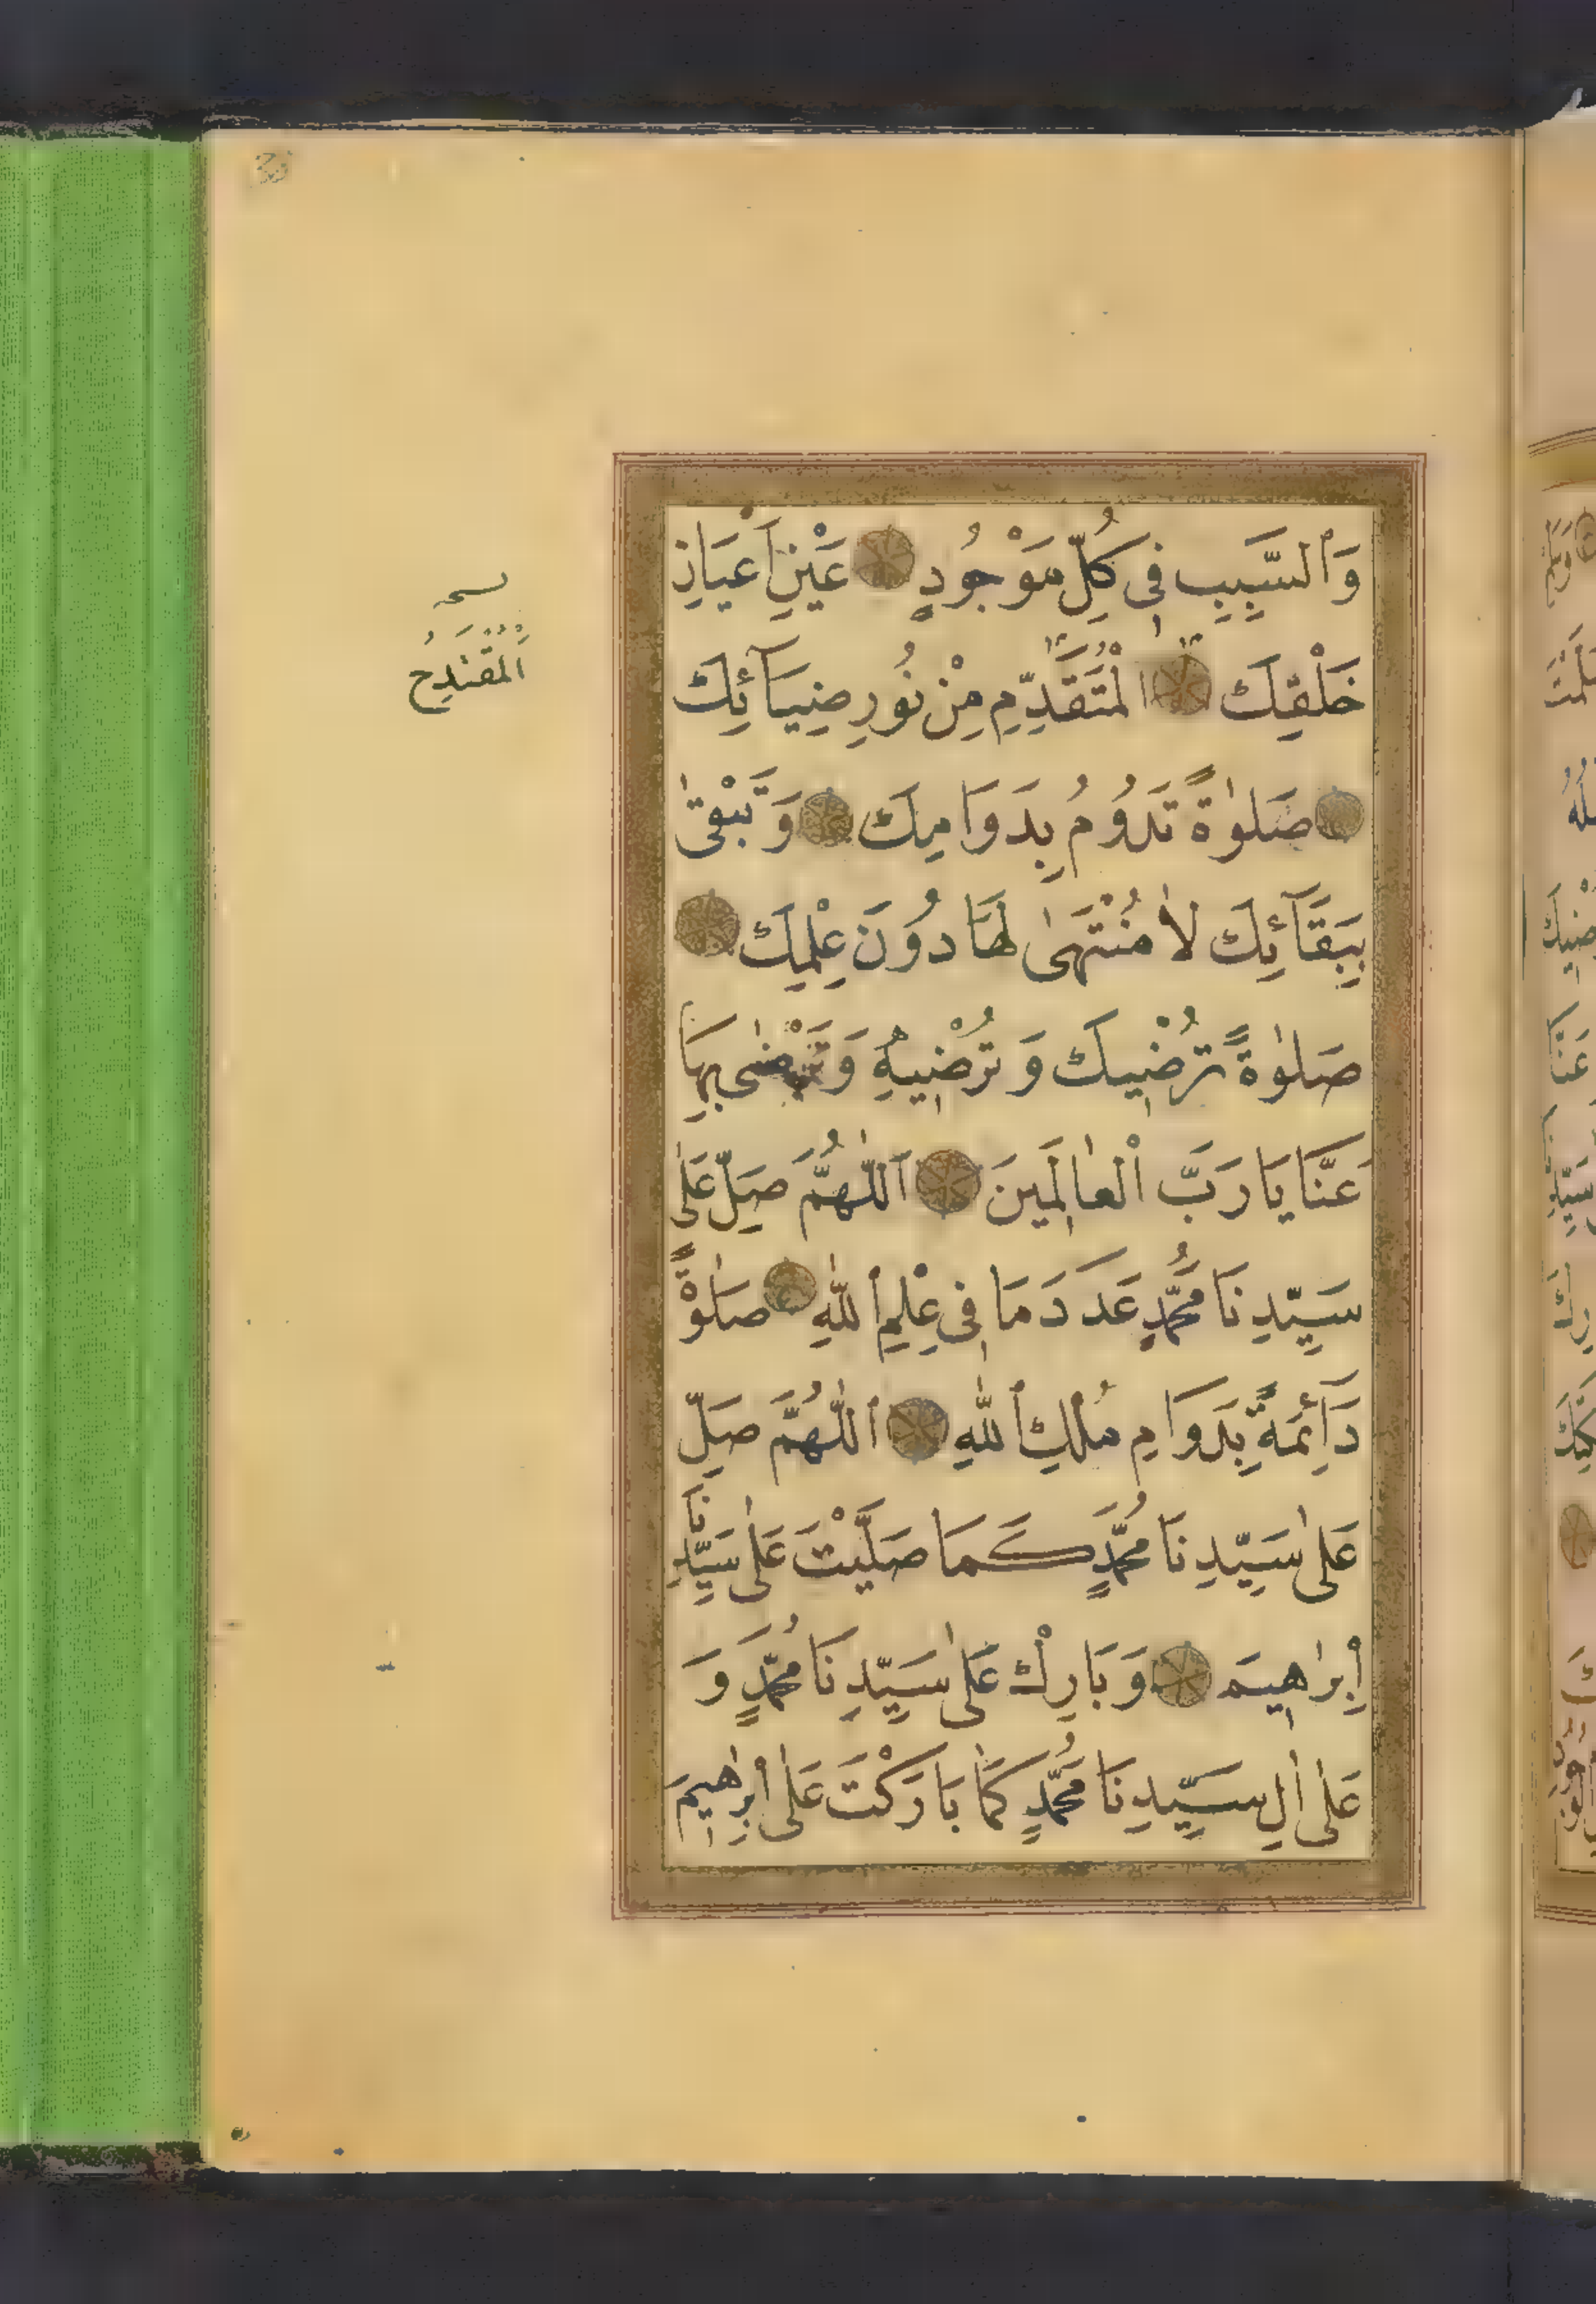 وَالسَّبَبِ فِي كُلِّ مَوْجُودٍ عَيْنِ اَعْيَانِ
خَلْقِكَ الْمُتَقَدِّمِ مِنْ نُورِ ضِيَآئِكَ
صَلٰوةً تَدُومُ بِدَوَامِكَ وَتَبْقٰى
بِبَقَآئِكَ لَا مُنْتَهٰى لَهَا دُونَ عِلْمِكَ
صَلٰوةً تُرْضِيكَ وَ تُرْضِيهِ وَتَرْضٰى بِهَا
عَنَّا يَا رَبَّ الْعَالَمِينَ اَللّٰهُمَّ صَلِّ عَلٰى
سَيِّدِنَا مُحَمَّدٍ عَدَدَ مَا فِي عِلْمِ اللّٰهِ صَلٰوةً
دَآئِمَةً بِدَوَامِ مُلْكِ اللّٰهِ اَللّٰهُمَّ صَلِّ
عَلٰى سَيِّدِنَا مُحَمَّدٍ كَمَا صَلَّيْتَ عَلٰى سَيِّدِنَا
اِبْرٰاهِيمَ وَبَارِكْ عَلٰى سَيِّدِنَا مُحَمَّدٍ وَ
عَلٰى اٰلِ سَيِّدِنَا مُحَمَّدٍ كَمَا بَارَكْتَ عَلٰى اِبْرٰهِيمَ